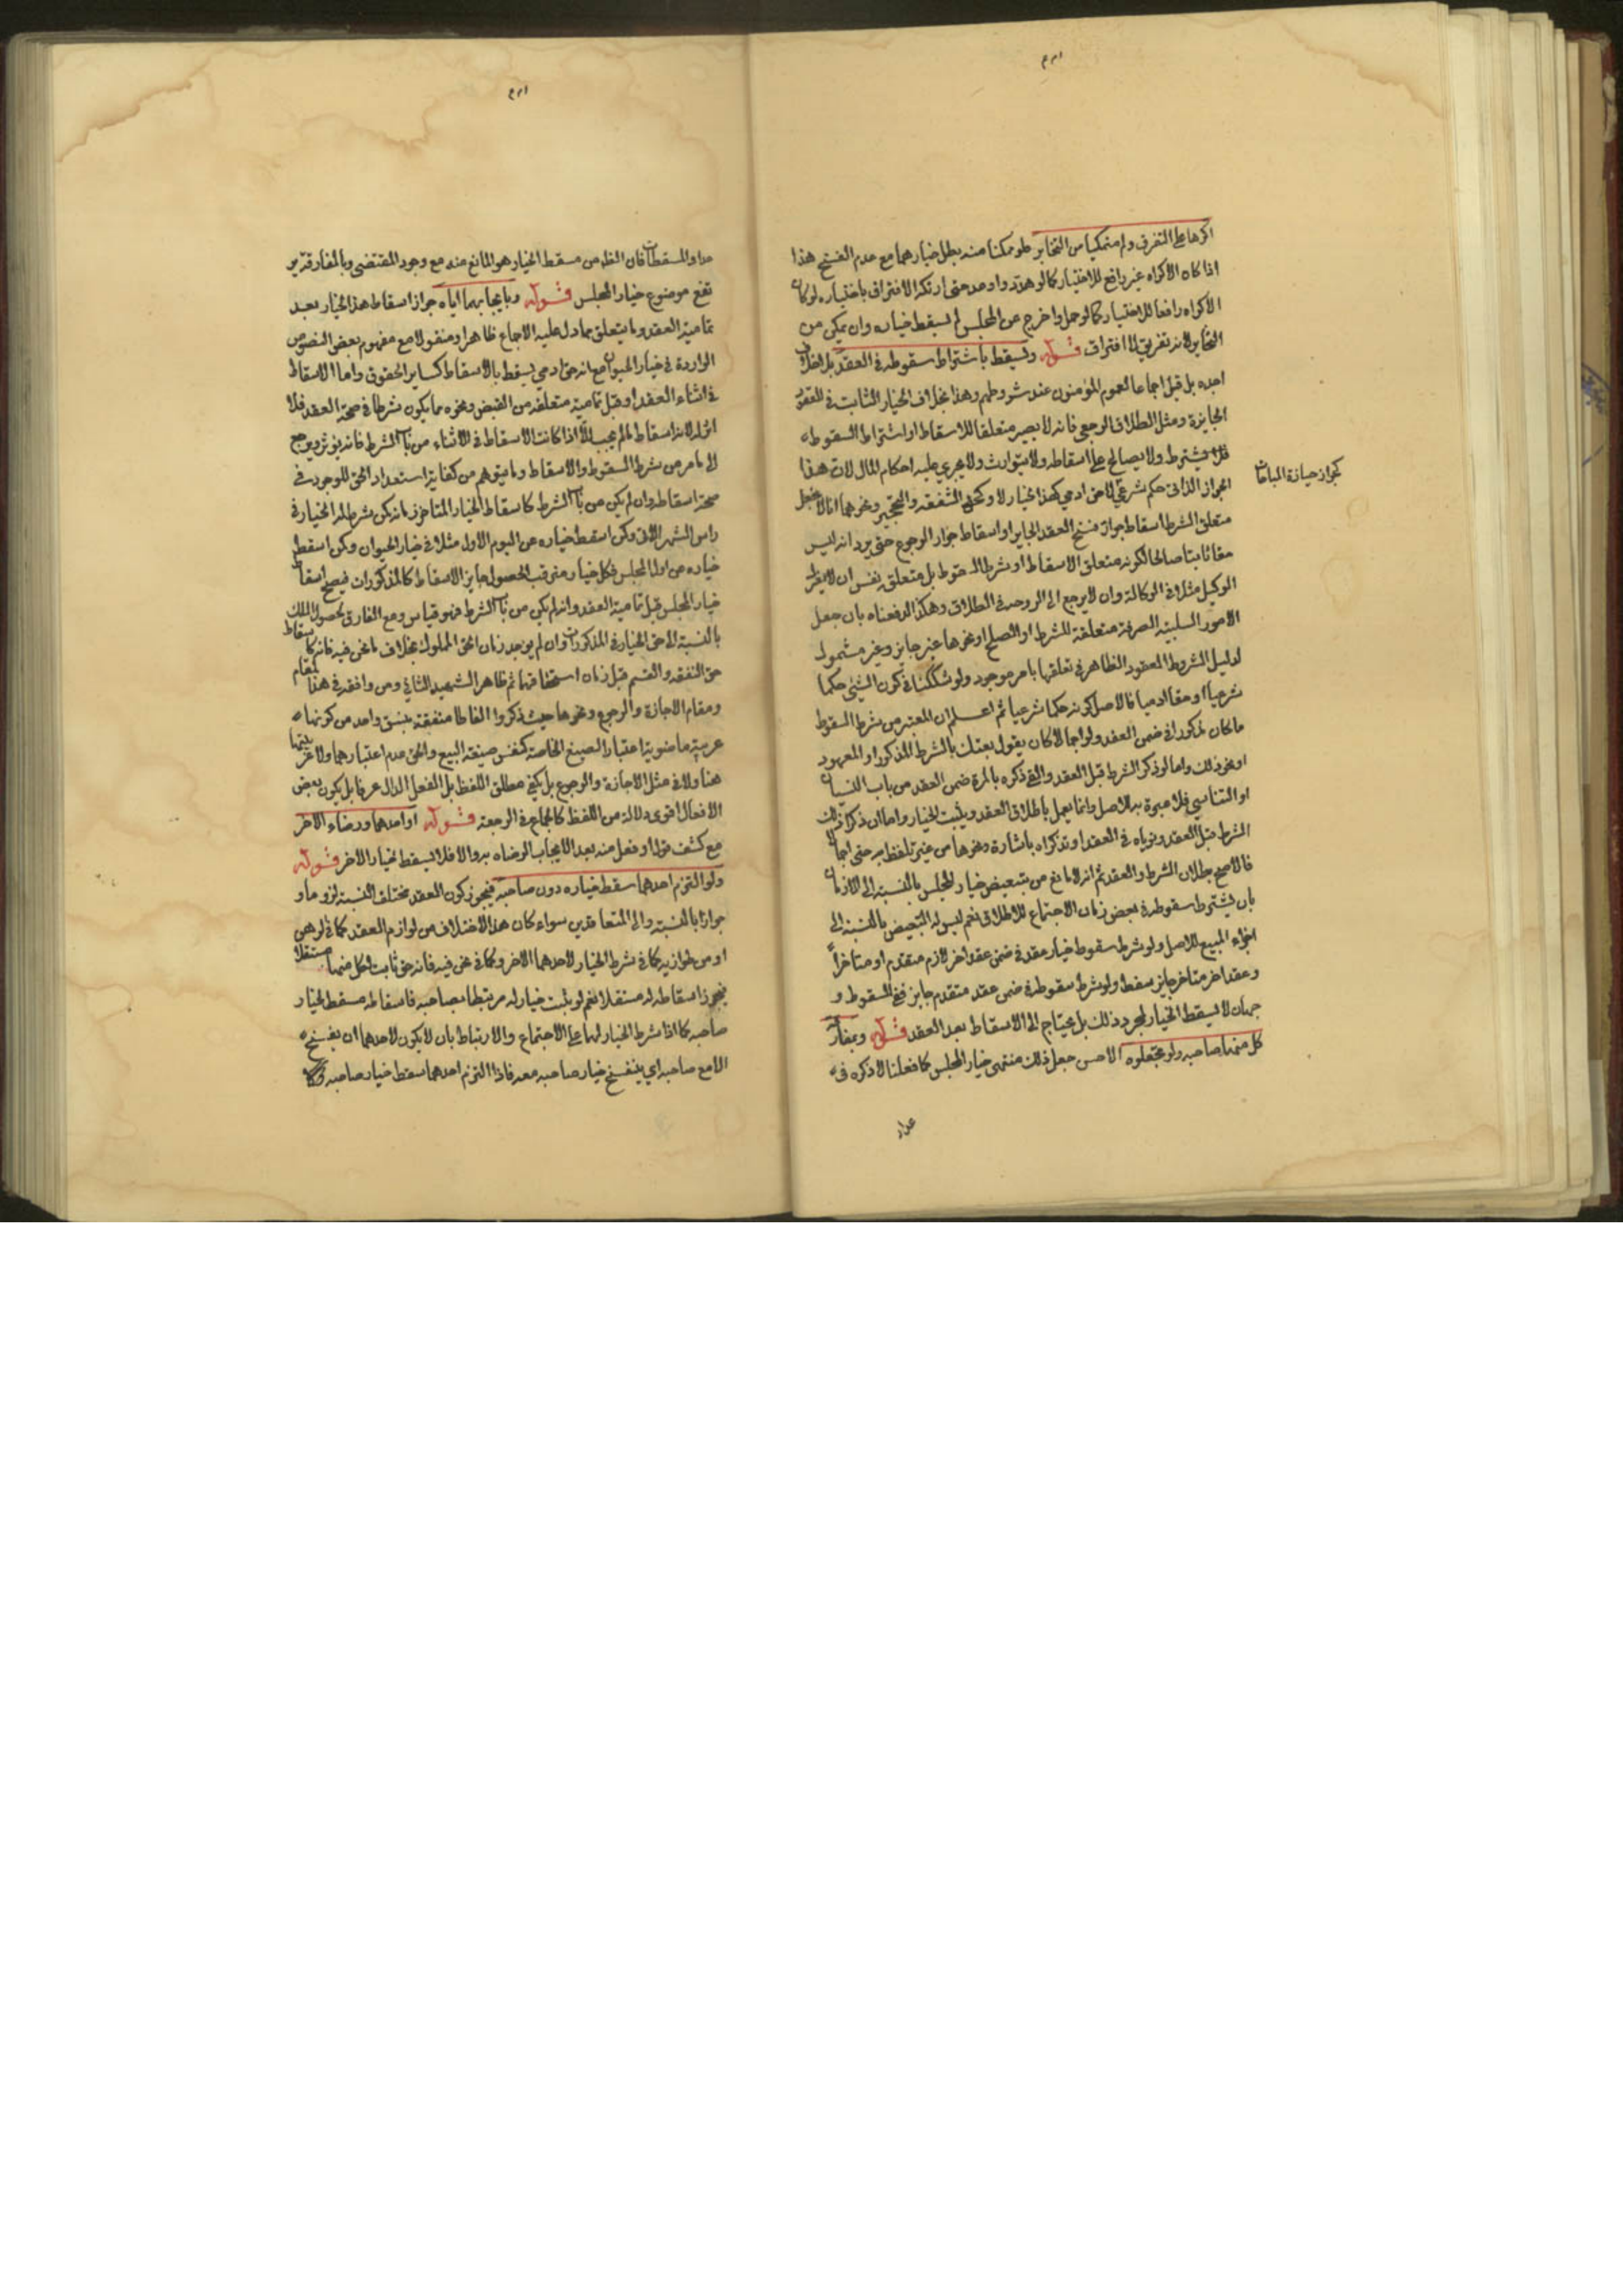 اكرها على التفرق ولم يتمكنا من التخاير فلو تمكنا منه بطل خيارهما مع عدم الفسخ هذا
اذا كان الاكراه غير رافع للاختيار كما لو هدد واوعد حتى ارتكب الافتراق باختياره لو كان
الاكراه رافعا للاختيار كما لو حمل واخرج عن المجلس لم يسقط خياره وان تمكن من
التخاير لانه تفريق لا افتراق قوله ويسقط باشتراط سقوطه في العقد بلا خلاف
اجده بل قيل اجماعا لعموم المؤمنون عند شروطهم وهذا بخلاف الخيار الثابت في العقود
الجايزة ومثل الطلاق الرجعي فانه لا يصير متعلقا للاسقاط او اشتراط السقوط
فلا يشترط ولا يصالح على اسقاطه ولا يتوارث ولا يجري عليه احكام المال لان هذا
كجواز حيازة المباحات
الجواز الذاتي حكم شرعي لا حق ادمي كهذا الخيار لا وكحق الشفعة والتحجير ونحوهما
متعلق الشرط اسقاط جواز فسخ العقد الجايز او اسقاط جواز الرجوع حتى يرد انه ليس
حقا ثابتا صالحا لكونه متعلق الاسقاط او شرط السقوط بل متعلق نفس ان لا يعزل
الوكيل مثلا في الوكالة وان لا يرجع الى الزوجة في الطلاق وهكذا لدفعناه بان جعل
الامور السلبية الصرفة متعلقة للشرط او الصلح او نحوها غير جايز وغير مشمول
لدليل الشروط العقود الظاهر في تعلقها بامر موجود ولو شككنا في كون الشيء حكما
شرعيا او حقا ادميا فالاصل كونه حكما شرعيا ثم اعلم ان المعتبر من شرط السقوط
ما كان مذكورا في ضمن العقد ولو اجمالا كان يقول بعتك بالشرط المذكور او المعهود
او نحو ذلك واما لو ذكر الشرط قبل العقد والقي ذكره بالمرة ضمن العقد من باب النسيان
او التناسي فلا عبرة به للاصل وانما يعمل باطلاق العقد ويثبت الخيار واما ان ذكرا ذلك
الشرط قبل العقد ونوياه في العقد او تذكراه باشارة ونحوها من غير تلفظ به حتى اجمالا
فالاصح بطلان الشرط والعقد ثم انه لا مانع من تبعيض خيار المجلس بالنسبة الى الازمان
بان يشترط سقوطه في بعض زمان الاجتماع للاطلاق نعم ليس له التبعيض بالنسبة الى
اجزاء المبيع للاصل ولو شرط سقوط خيار عقد في ضمن عقد اخر لازم متقدم او متاخرا
وعقد اخر متاخر جايز سقط ولو شرط سقوطه في ضمن عقد متقدم جايز ففي السقوط و
جهان لا يسقط الخيار لمجرد ذلك بل يحتاج الى الاسقاط بعد العقد قوله وبمفارقة
كل منهما صاحبه ولو بخطوة الاحسن جعل ذلك منتهى خيار المجلس كما فعلنا لا ذكره في
عداد
عداد المسقطات فان الظاهر من مسقط الخيار هو المانع منه مع وجود المقتضي وبالمفارقة ير
تفع موضوع خيار المجلس قوله وبايجابهما اياه جواز اسقاط هذا الخيار بعد
تمامية العقد وما يتعلق مما دل عليه الاجماع ظاهرا ومنقولا مع مفهوم بعض النصوص
الواردة في خيار الحيوان مع انه حق ادمي يسقط بالاسقاط كساير الحقوق واما الاسقاط
في اثناء العقد او قبل تمامية متعلقه من القبض ونحوه مما يكون شرطا في صحة العقد فلا
اثر له لانه اسقاط لما لم يجب الا اذا كانت الاسقاط في الاثناء من باب الشرط فانه يؤثر ويرجع
الى ما مر من شرط السقوط والاسقاط وما يتوهم من كفاية استعداد الحق للوجود في
صحة اسقاطه وان لم يكن من باب الشرط كاسقاط الخيار المتاخر زمانه كمن شرط له الخيار في
راس الشهر الاتي وكمن اسقط خياره من اليوم الاول مثلا في خيار الحيوان وكمن اسقط
خياره من اول المجلس فكل خيار مترقب الحصول جايز الاسقاط كالمذكورات فيصح اسقاط
خيار المجلس قبل تمامية العقد وان لم يكن من باب الشرط فهو قياس ومع الفارق لحصول الملك
بالنسبة الى حق الخيار في المذكورات وان لم يوجد زمان الحق المملوك بخلاف ما نحن فيه فانه كاسقاط
حق النفقة والقسم قبل زمان استحقاقهما ثم ظاهر الشهيد الثاني ومن وافقه في هذا المقام
ومقام الاجازة والرجوع ونحوها حيث ذكروا الفاظا متفقة بنسق واحد من كونها
عربية ماضوية اعتبار الصيغ الخاصة كنفس صيغة البيع والحق عدم اعتبارهما ولا عربيتها
هنا ولا في مثل الاجازة والرجوع بل يكفي مطلق اللفظ بل الفعل الدال عرفا بل يكون بعض
الافعال اقوى دلالة من اللفظ كالجماع في الرجعة قوله او احدهما ورضاء الاخر
مع كشف قول او فعل منه بعد الايجاب لرضاه به والا فلا يسقط خيار الاخر قوله
ولو التزم احدهما سقط خياره دون صاحبه فيجوز كون العقد مختلف النسبة لزوما و
جوازا بالنسبة الى المتعاقدين سواء كان هذا الاختلاف من لوازم العقد كما في الرهن
او من طوارئه كما في شرط الخيار لاحدهما الاخر وكما في نحن فيه فانه حق ثابت لكل منهما مستقلا
فيجوز اسقاطه له مستقلا نعم لو يثبت خيار له مرتبطا بصاحبه فاسقاطه مسقط لخيار
صاحبه كما اذا شرط الخيار لهما على الاجتماع والارتباط بان لا يكون لاحدهما ان يفسخ
الا مع صاحبه اي بفسخ خيار صاحبه معه فاذا التزم احدهما سقط خيار صاحبه